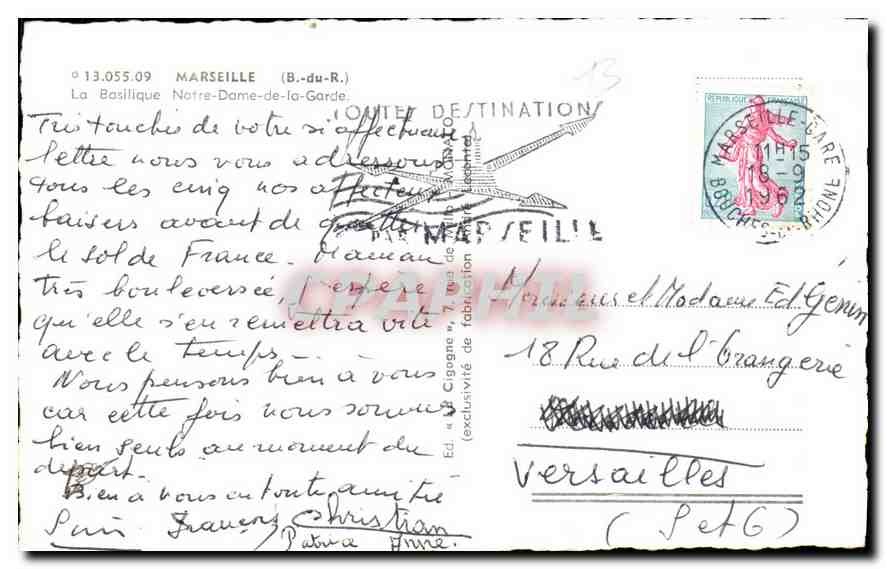 13.055.09 MARSEILLE (B.-du-R.)
La Basilique Notre-Dame-de-la-Garde.
13
TOUTES DESTINATIONS
PAR MARSEILLE
REPUBLIQUE FRANCAISE
MARSEILLE-GARE
11H15
18-9
1962
BOUCHES-DU-RHONE
Très touchés de votre si affectueuse
lettre nous vous adressons
tous les cinq nos affectueux
baisers avant de quitter
le sol de France. Maman
très bouleversée, j'espère
qu'elle s'en remettra vite
avec le temps.
Nous pensons bien à vous
car cette fois nous sommes
bien seuls au moment du
départ.
Bien à vous en toute amitié
François Christian
Patrice Anne.
Ed. « La Cigogne », 7, rue de MONACO
(exclusivité de fabrication André Leconte)
CPAPHIL
Monsieur et Madame Ed. Génin
18 Rue de l'Orangerie
Versailles
(S et O)